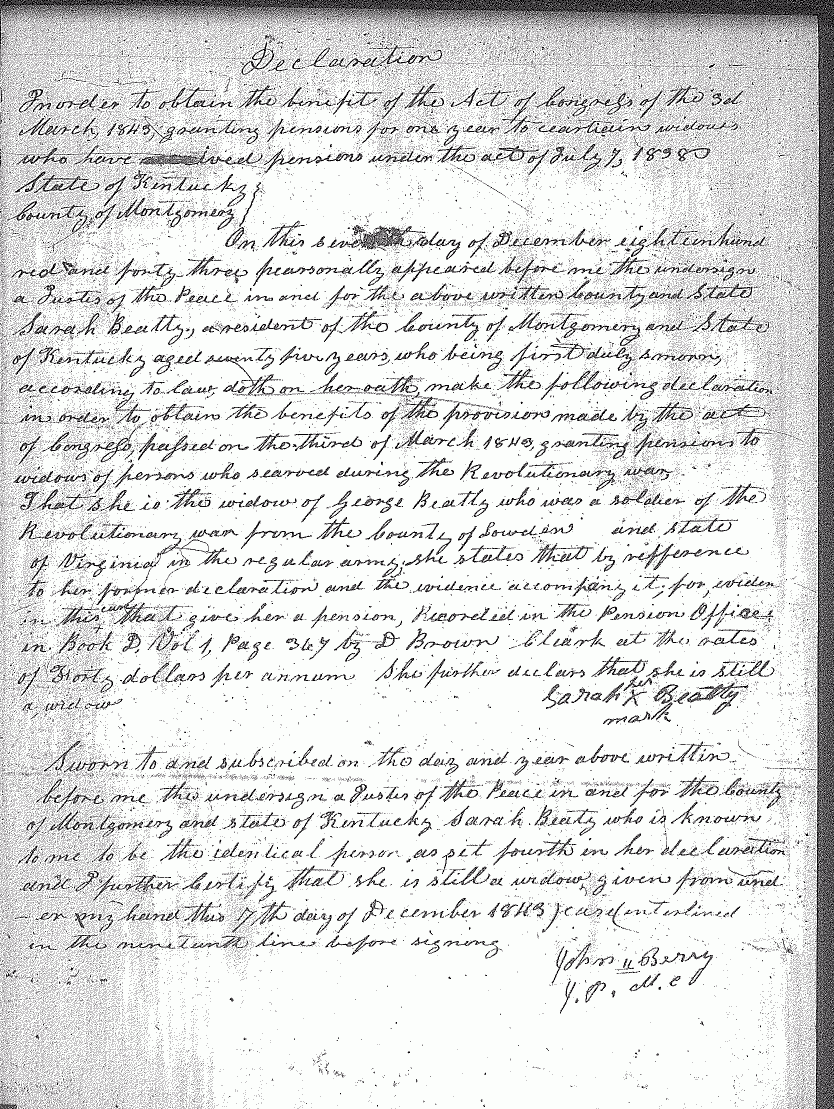 Declaration
In order to obtain the benefit of the Act of Congress of the 3d
March, 1843, granting pensions for one year to ceartiain widows
who have ived pensions under the act of July 7, 1838
State of Kentucky }
County of Montgomery }
On this seventh day of December eighteen hund
red and forty three pearsonally appeared before me the undersign
a Justes of the Peace in and for the above written County and State
Sarah Beatty, a resident of the County of Montgomery and State
of Kentucky aged seventy five years, who being first duly sworn,
according to law, doth on her oath, make the following declaration
in order to obtain the benefits of the provision made by the act
of Congress, passed on the third of March 1843, granting pensions to
widows of persons who searved during the Revolutionary war,
That she is the widow of George Beatty who was a soldier of the
Revolutionary war from the County of Lowden and state
of Virginia in the regular army, she states that by refference
to her former declaration and the evidence accompany it, for, widen
in this case that give her a pension, Recorded in the Pension Office
in Book D, Vol 1, Page 367 by D Brown Cleark at the rates
of Forty dollars per annum She further declars that she is still
a, widow
Sarah her X Beatty
mark
Sworn to and subscribed on the day and year above writtin
before me the undersign a Justes of the Peace in and for the County
of Montgomery and state of Kentucky Sarah Beaty who is known
to me to be the identical person, as set fourth in her declaration
and I further Certify that she is still a widow, given from und
- er my hand this 7th day of December 1843) case interlined
in the nineteenth line before signong
John Berry
J. P. M. C